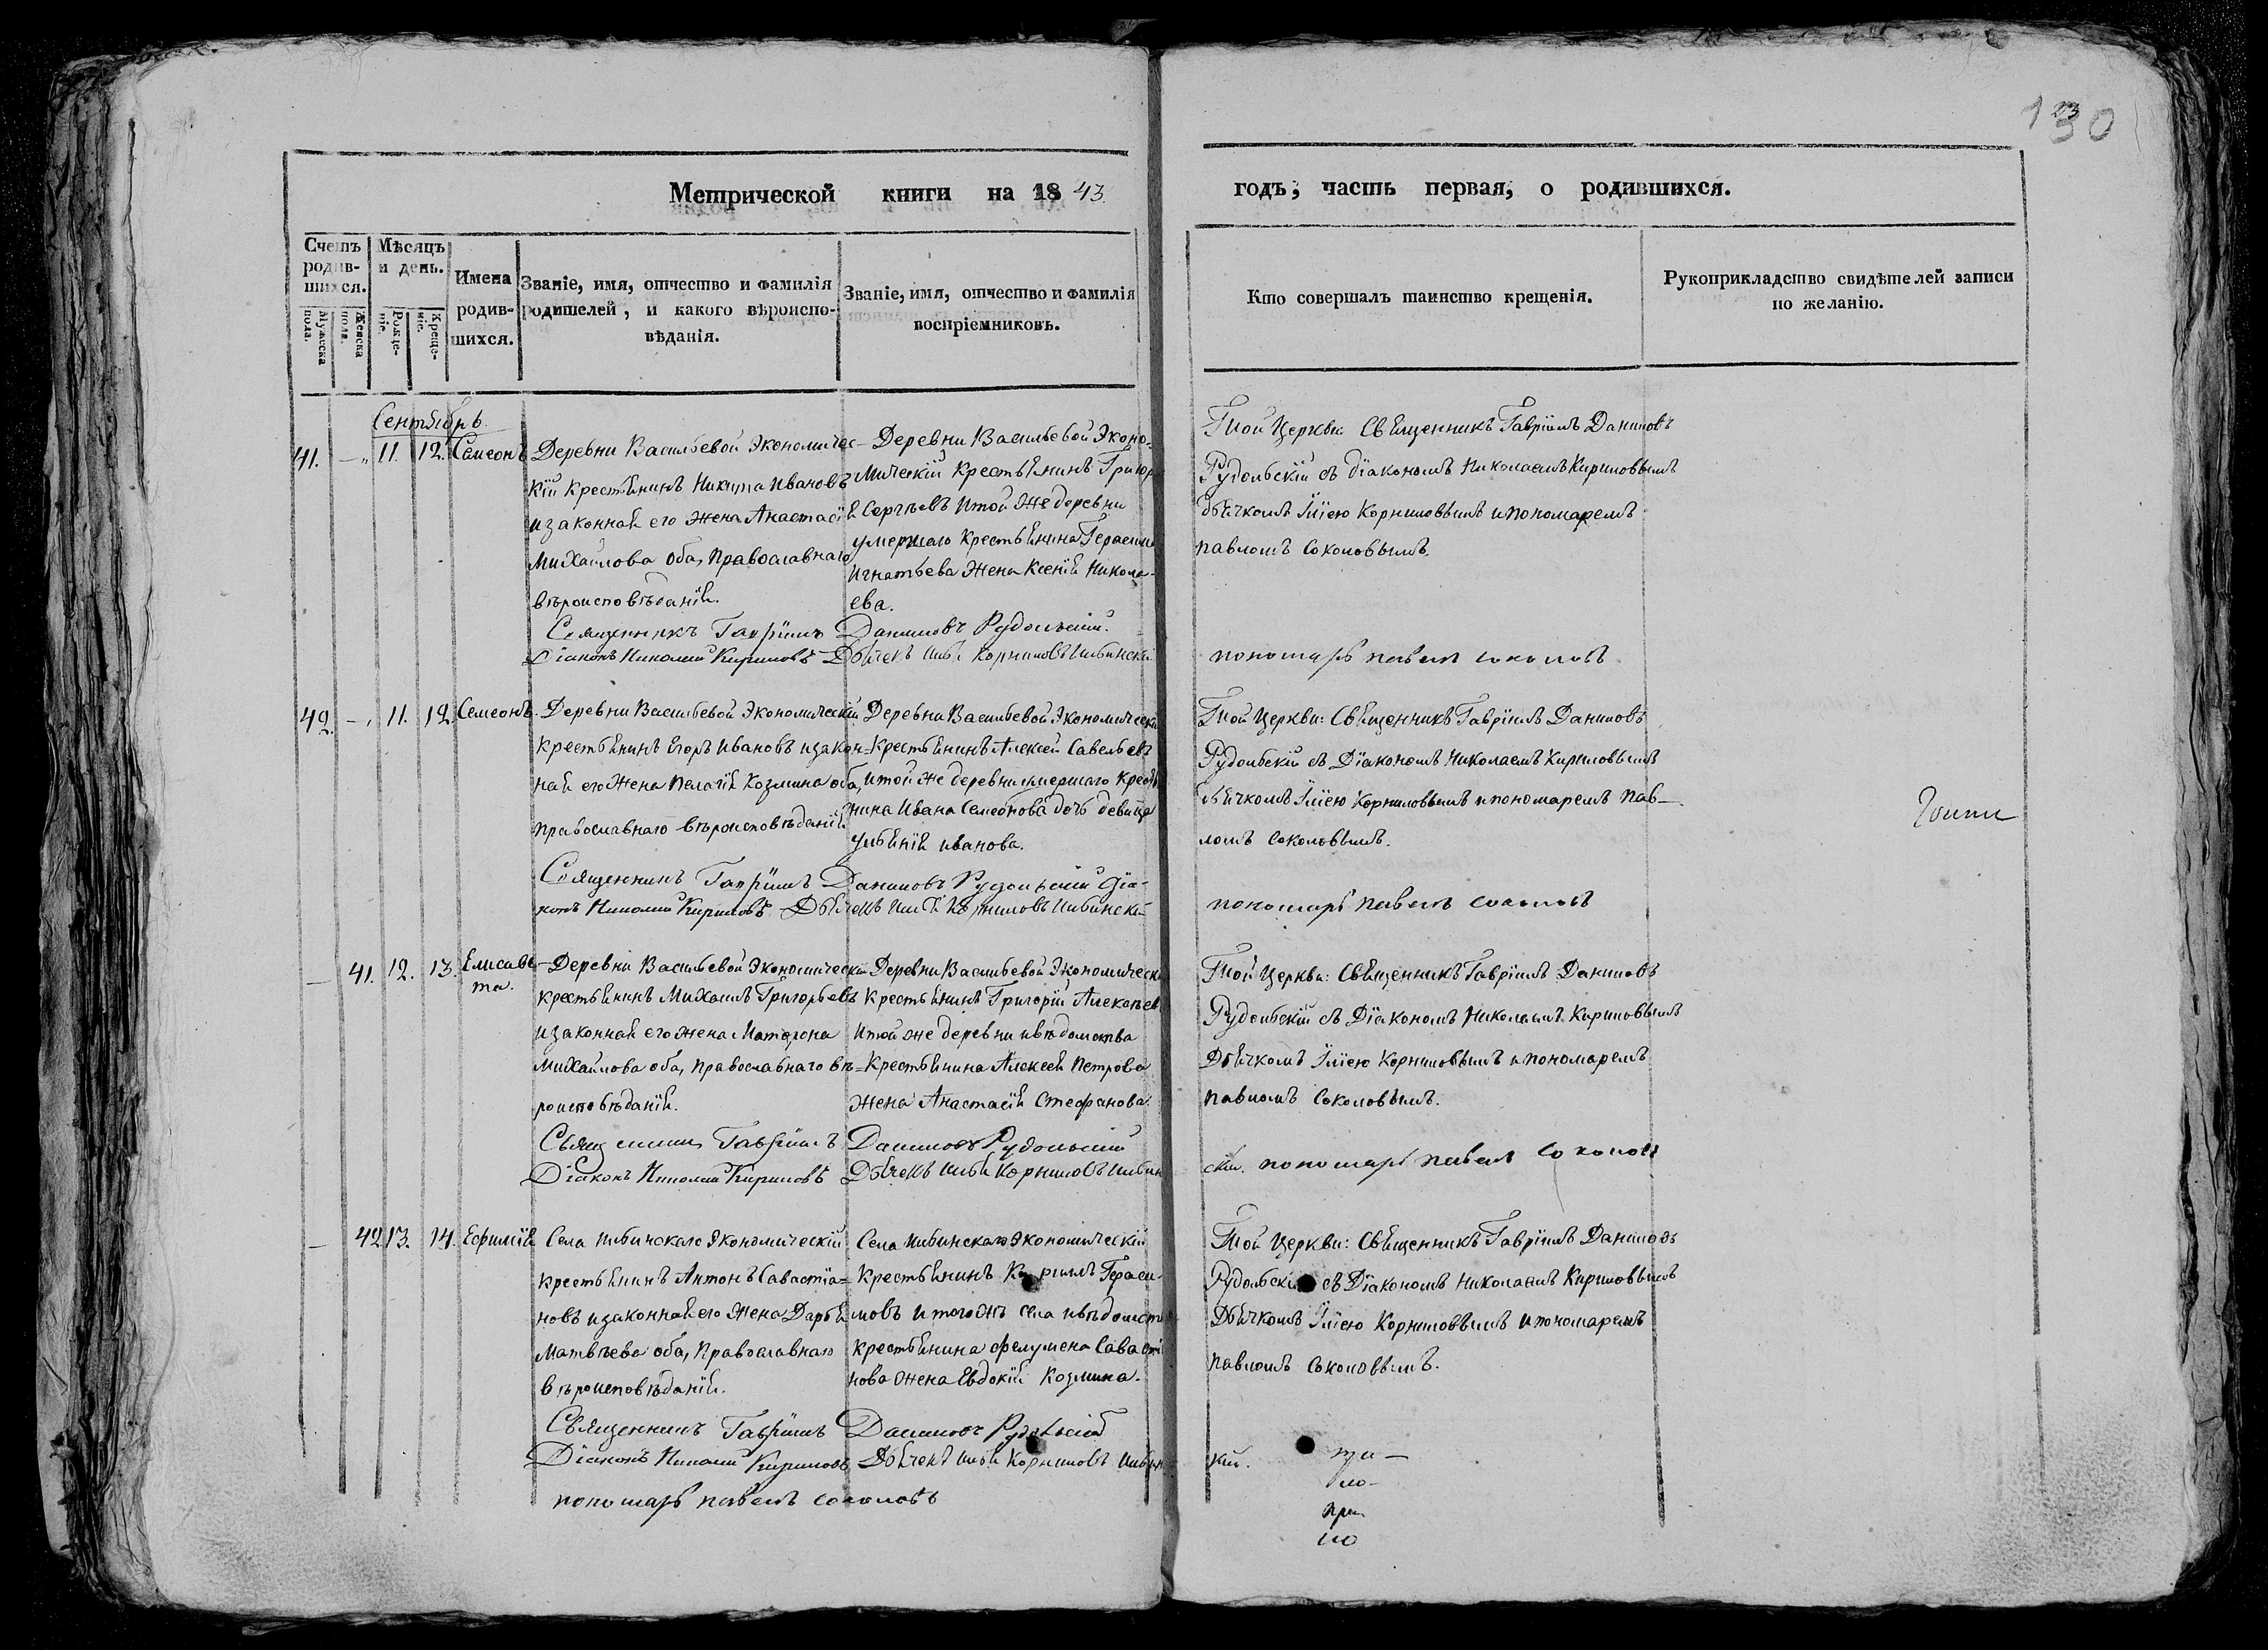 130
Метрической книги на 1843 годъ, часть первая, о родившихся.
Счетъ родив-шихся.
Мужеска пола.
Женска пола.
Мѣсяцъ и день.
Рожде-ніе.
Креще-ніе.
Имена родив-шихся.
Званіе, имя, отчество и фамилія
родителей, и какого вѣроиспо-
вѣданія.
Званіе, имя, отчество и фамилія
воспріемниковъ.
Кто совершалъ таинство крещенія.
Рукоприкладство свидѣтелей записи
по желанію.
Сентябрь
41. — 11. 12. Семеонъ
Деревни Васильевой Экономичес-
кій крестьянинъ Никита Ивановъ
и законная его жена Анастасія
Михайлова оба, Православнаго
вѣроисповѣданія.
Деревни Васильевой Эконо-
мическій Крестьянинъ Григор
й Сергѣевъ и той же деревни
умершаго Крестьянина Герасима
Игнатьева жена Ксенія Никола-
ева.
Той Церкви Священникъ Гавріилъ Даниловъ
Рудольскій съ діакономъ Николаемъ Кириловымъ
дьячкомъ Иліею Корниловымъ и пономаремъ
павломъ Соколовымъ.
Священникъ Гавріилъ Даниловъ Рудольскій.
Діаконъ Николай Кириловъ Дьячекъ Илья Корниловъ
пономарь павелъ соколовъ
42. — 11. 12. Семеонъ.
Деревни Васильевой Экономическій
крестьянинъ Егоръ Ивановъ и закон-
ная его жена Пелагія Козмина оба,
православнаго вѣроисповѣданія
Деревни Васильевой Экономическій
Крестьянинъ Алексей Савельевъ
и той же деревни умершаго Кресть
нина Ивана Семеонова дочь девица
Ульянія иванова.
Той Церкви: Священникъ Гавріилъ Даниловъ
Рудольскій съ Діакономъ Николаемъ Кириловымъ
дьячкомъ Иліею Корниловымъ и пономаремъ пав-
ломъ Соколовымъ.
Священникъ Гавріилъ Даниловъ Рудольскій Діа-
конъ Николай Кириловъ Дьячекъ Илья Корниловъ
пономарь павелъ соколовъ
— 41. 12. 13. Елисаве-
та.
Деревни Васильевой Экономическій
крестьянинъ Михаилъ Григорьевъ
и законная его жена Матрона
Михайлова оба, православнаго вѣ-
роисповѣданія.
Деревни Васильевой Экономическ
Крестьянинъ Григорій Алексѣев
и той же деревни и вѣдомства
Крестьянина Алексея Петрова
жена Анастасія Стефанова.
Той Церкви: Священникъ Гавріилъ Даниловъ
Рудольскій съ Діакономъ Николаемъ Кириловымъ
Дьячкомъ Иліею Корниловымъ и пономаремъ
павломъ Соколовымъ.
Священникъ Гавріилъ Даниловъ Рудольскій
Діаконъ Николай Кириловъ Дьячекъ Илья Корниловъ
скій. пономарь павелъ соколовъ
— 42. 13. 14. Ефимія
Села Экономическій
крестьянинъ Антонъ Савастіа-
новъ и законная его жена Дарья
Матвѣева оба, Православнаго
вѣроисповѣданія.
Села Экономическій
Крестьянинъ Кирилъ Гераси-
мовъ и тогожъ села и вѣдомст
крестьянина филумена Саваст
нова жена Евдокія Козмина.
Той Церкви: Священникъ Гавріилъ Даниловъ
Рудольскій съ Діакономъ Николаемъ Кириловымъ
Дьячкомъ Иліею Корниловымъ и пономаремъ
павломъ Соколовымъ.
Священникъ Гавріилъ Даниловъ Рудольскій
Діаконъ Николай Кириловъ Дьячекъ Илья Корниловъ
кій.
пономарь павелъ соколовъ